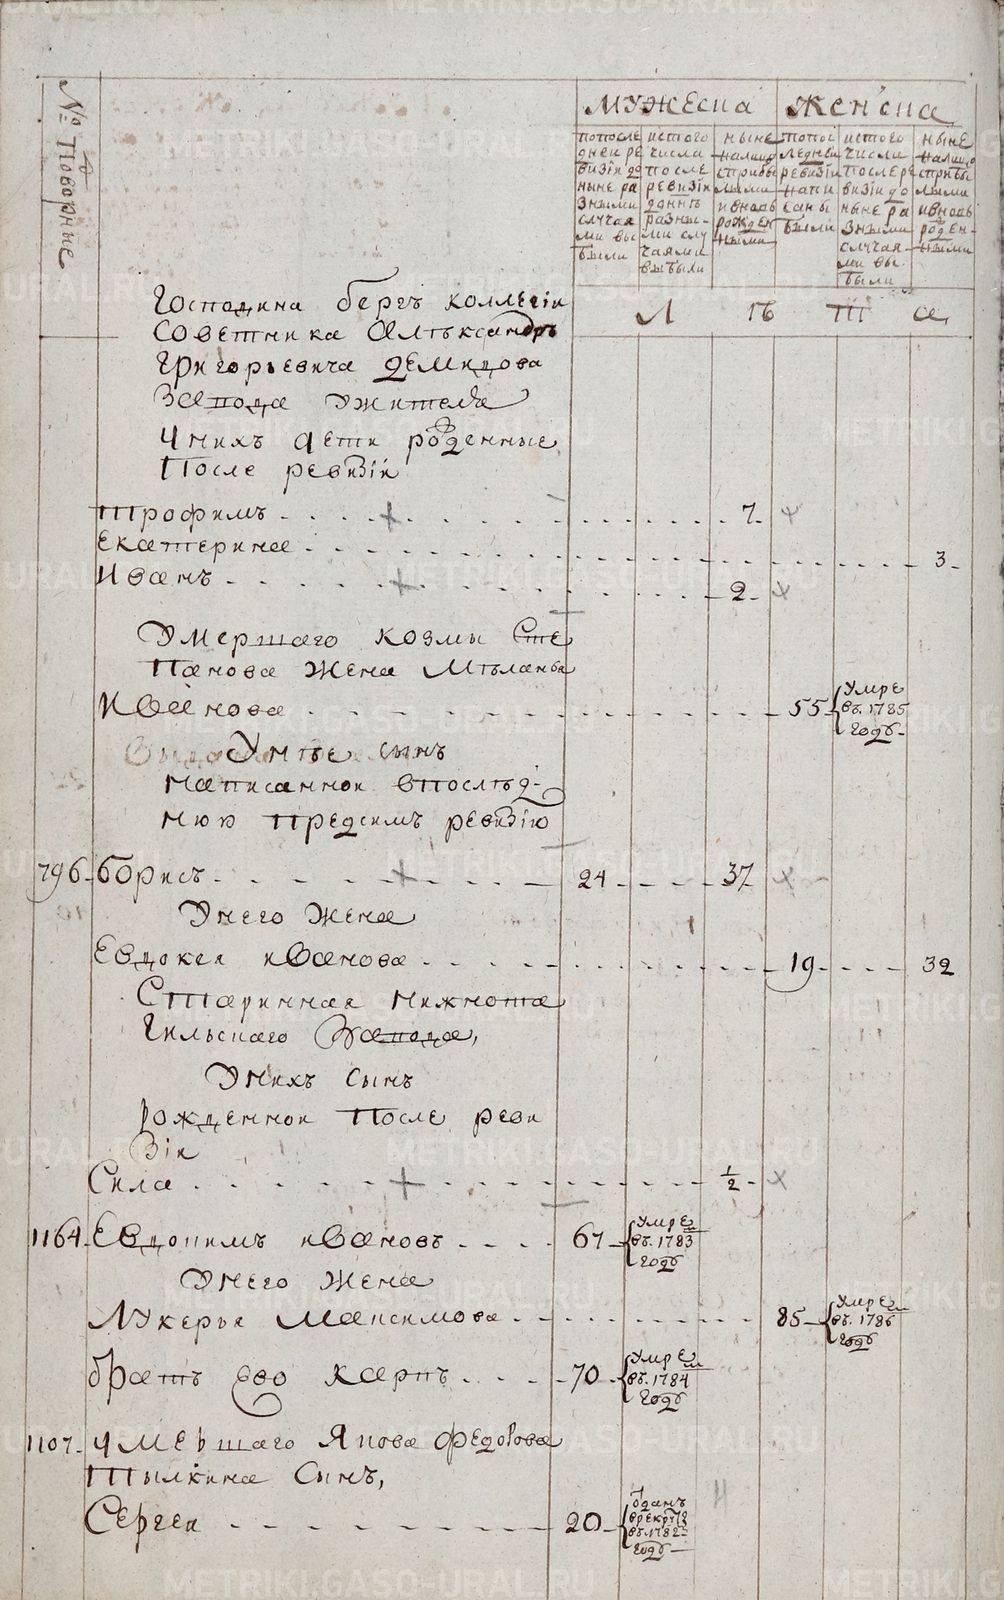 № Подворные
мужеска
женска
попосле дней ревизїи до ныне разными случаями выбыли
истого числа после ревизїи домны разными случаями выбыли
ныне налицо сприбылыми ивновь рожденными
попоследней ревизїи написаны были
истого числа после ревизїи до ныне разными случаями выбыли
ныне налицо сприбылыми ивновь рожденными
Л ѣ т а
Господина бергъ коллегїи
Советника Алѣксандръ
Григорьевича демидова
Завода Жители
Унихъ дети роденные
После ревизїи
Трофимъ 7
Екатерина 3
Иванъ 2
Умершаго козмы Сте
панова Жена Мѣланья
Иванова 55 умре въ 1785 годѣ
Унѣе сынъ
написанной впослѣд
нюю предсимъ ревизїю
796 борисъ 24 37
Унего Жена
Евдокея иванова 19 32
Старинная нижнота
гильскаго Завода,
Унихъ сынъ
рожденной После реви
зїи
Сила 1/2
1164 Евдокимъ ивановъ 67 умре въ 1783 годѣ
Унего Жена
Лукерья Максимова 85 умре въ 1786 годѣ
братъ ево карпъ 70 умре въ 1784 годѣ
1107 умершаго Якова федорова
Тылкина Сынъ,
Сергеи 20 Отданъ врекруты въ 1782 годѣ